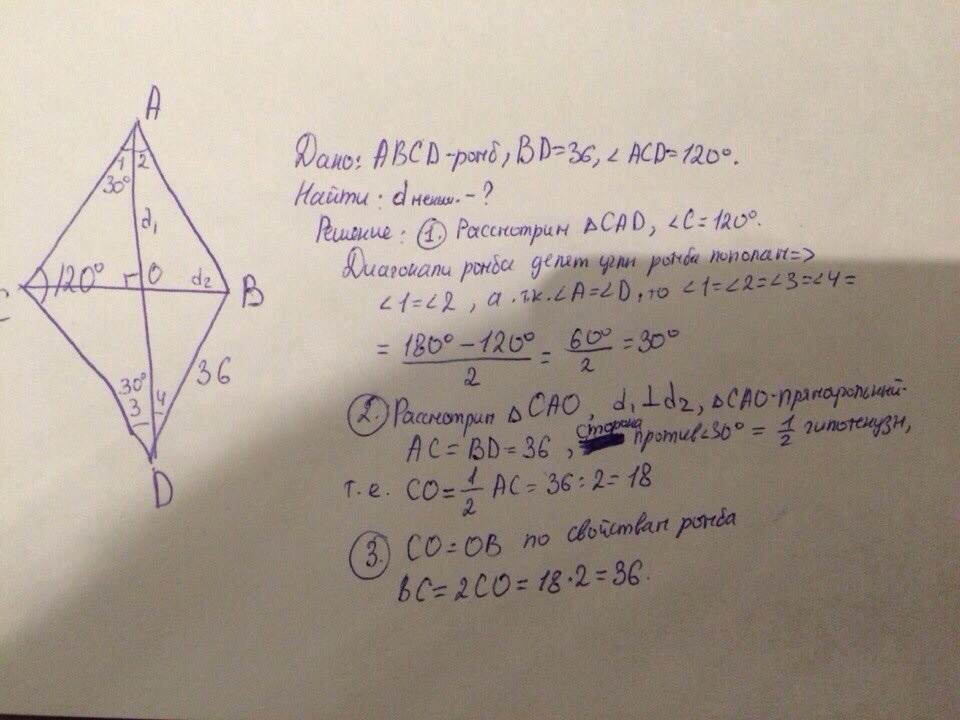 A
1 2
30°
d₁
C 120° O d₂ B
36
30°
3 4
D
Дано: ABCD-ромб, BD=36, ∠ ACD=120°.
Найти: d меньш. - ?
Решение: 1. Рассмотрим △CAD, ∠C=120°.
Диагонали ромба делят углы ромба пополам=>
∠1=∠2, а т.к. ∠A=∠D, то ∠1=∠2=∠3=∠4=
= (180°-120°)/2 = 60°/2 = 30°
2. Рассмотрим △CAO, d₁⊥d₂, △CAO-прямоугольный.
AC=BD=36, сторона против∠30° = 1/2 гипотенузы,
т.е. CO=1/2 AC=36:2=18
3. CO=OB по свойствам ромба
BC=2CO=18·2=36.